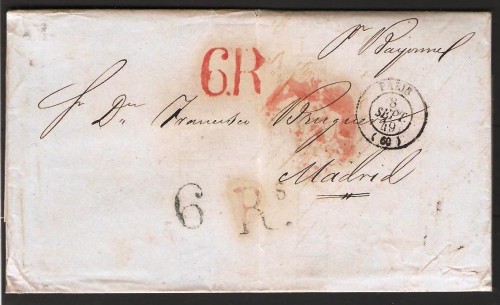 pr Bayonne
6.R
PARIS
8
SEPT.
49
(60)
Sr Dn Francisco
Madrid
6 Rs.